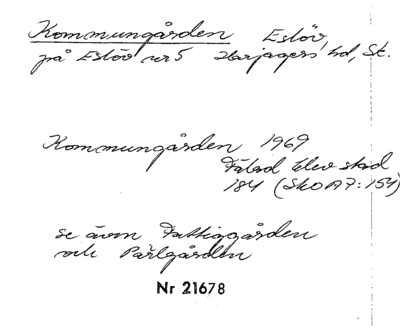 Kommungården Eslöv,
på Eslöv nr 5 Harjagers hd, Sk.
Kommungården 1969
Eslöv stad
184 (SkoA7:154)
se även Fattiggården
och Pärlgården
Nr 21678